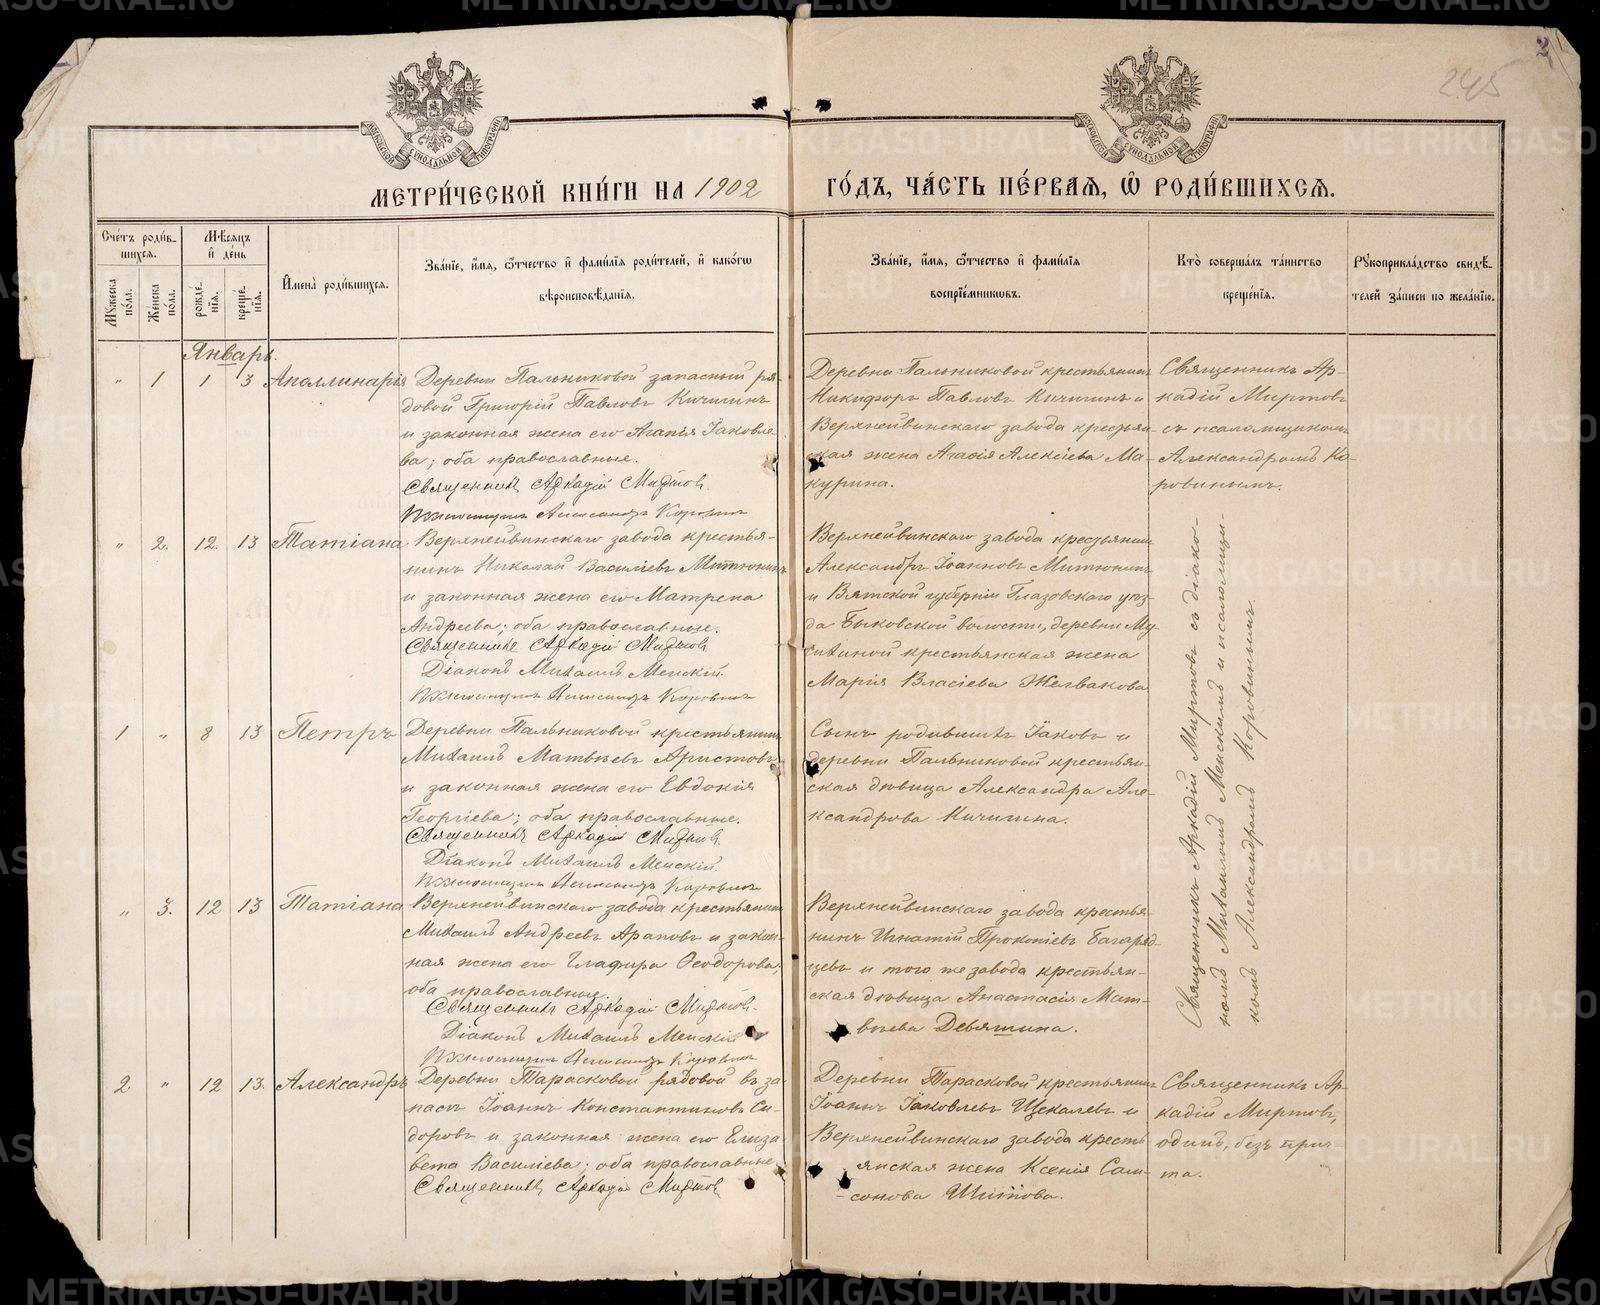 2
245
МОСКОВСКОЙ СѴНОДАЛЬНОЙ ТИПОГРАФІИ
МОСКОВСКОЙ СѴНОДАЛЬНОЙ ТИПОГРАФІИ
МЕТРИ́ЧЕСКОЙ КНИ́ГИ НА 1902
ГО́ДЪ, ЧА́СТЬ ПЕ́РВАѦ, Ѡ҆ РОДИ́ВШИХСѦ.
Сче́тъ роди́в-
шихсѧ.
Мꙋ́жеска по́ла.
Же́нска по́ла.
Мѣ́сѧцъ
и҆ де́нь
рожде́-
нїѧ.
креще́-
нїѧ.
И҆мена̀ роди́вшихсѧ.
Зва́нїе, и҆́мѧ, ѻ҆́тчество и҆ фами́лїѧ роди́телей, и҆ како́гѡ
вѣроисповѣ́данїѧ.
Зва́нїе, и҆́мѧ, ѻ҆́тчество и҆ фами́лїѧ
воспрїе́мникѡвъ.
Кто̀ соверша́лъ та́инство
креще́нїѧ.
Рꙋкоприкла́дство свидѣ́-
телей за́писи по жела́нїю.
Январь.
" 1 1 3 Аполлинарія
Деревни Пальниковой запасный ря-
довой Григорій Павловъ Кичигинъ
и законная жена его Агапія Іаковле-
ва; оба православные.
Священникъ Аркадій Миртовъ.
Псаломщикъ Александръ Коровинъ
Деревни Пальниковой крестьянинъ
Никифоръ Павловъ Кичигинъ и
Верхнейвинскаго завода крестьян-
ская жена Агафія Алексіева Ма-
курина.
Священникъ Ар-
кадій Миртовъ
съ псаломщикомъ
Александромъ Ко-
ровинымъ.
" 2. 12. 13 Татіана
Верхнейвинскаго завода крестья-
нинъ Николай Василіевъ Митюнинъ
и законная жена его Матрена
Андреева; оба православные.
Священникъ Аркадій Миртовъ
Діаконъ Михаилъ Менскій.
Псаломщикъ Александръ Коровинъ
Верхнейвинскаго завода крестьянинъ
Александръ Іоанновъ Митюнинъ
и Вятской губерніи Глазовскаго уѣз-
да Быковской волости, деревни
крестьянская жена
Марія Власіева Желвакова
Священникъ Аркадій Миртовъ съ діако-
номъ Михаиломъ Менскимъ и псаломщи-
комъ Александромъ Коровинымъ.
1 " 8 13 Петръ
Деревни Пальниковой крестьянинъ
Михаилъ Матвѣевъ Аристовъ
и законная жена его Евдокія
Георгіева; оба православные.
Священникъ Аркадій Миртовъ.
Діаконъ Михаилъ Менскій.
Псаломщикъ Александръ Коровинъ
Сынъ родившихъ Іаковъ и
деревни Пальниковой крестьян-
ская дѣвица Александра Але-
ксандрова Кичигина.
" 3. 12 13 Татіана
Верхнейвинскаго завода крестьянинъ
Михаилъ Андреевъ Араповъ и закон-
ная жена его Глафира Ѳеодорова,
оба православные.
Священникъ Аркадій Миртовъ.
Діаконъ Михаилъ Менскій
Псаломщикъ Александръ Коровинъ
Верхнейвинскаго завода крестья-
нинъ Игнатій Прокопіевъ Багаряд-
цевъ и того же завода крестьян-
ская дѣвица Анастасія Мат-
вѣева Девяшина.
2 " 12 13. Александръ
Деревни Тарасковой рядовой въ за-
пасѣ Іоаннъ Константиновъ Си-
доровъ и законная жена его Елиза-
вета Василіева; оба православные
Священникъ Аркадій Миртовъ
Деревни Тарасковой крестьянинъ
Іоаннъ Іаковлевъ Щекалевъ и
Верхнейвинскаго завода кресть-
янская жена Ксенія Сам-
сонова Шитова.
Священникъ Ар-
кадій Миртовъ,
одинъ, безъ прич-
та.
METRIKI.GASO-URAL.RU